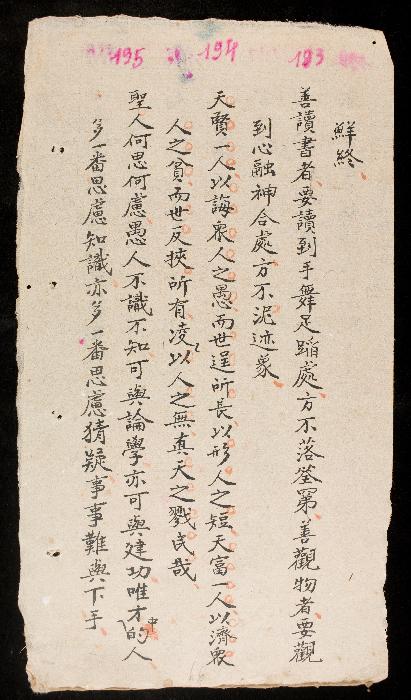 鮮終
193
善讀書者要讀到手舞足蹈處方不落筌第善觀物者要觀
到心融神合處方不泥迹象
194
天賢一人以誨衆人之愚而世逞所長以形人之短天富一人以濟衆
人之貧而世反挾所有凌以人之無真天之戮民哉
195
聖人何思何慮愚人不識不知可與論學亦可與建功唯中才的人
多一番思慮知識亦多一番思慮猜疑事事難與下手